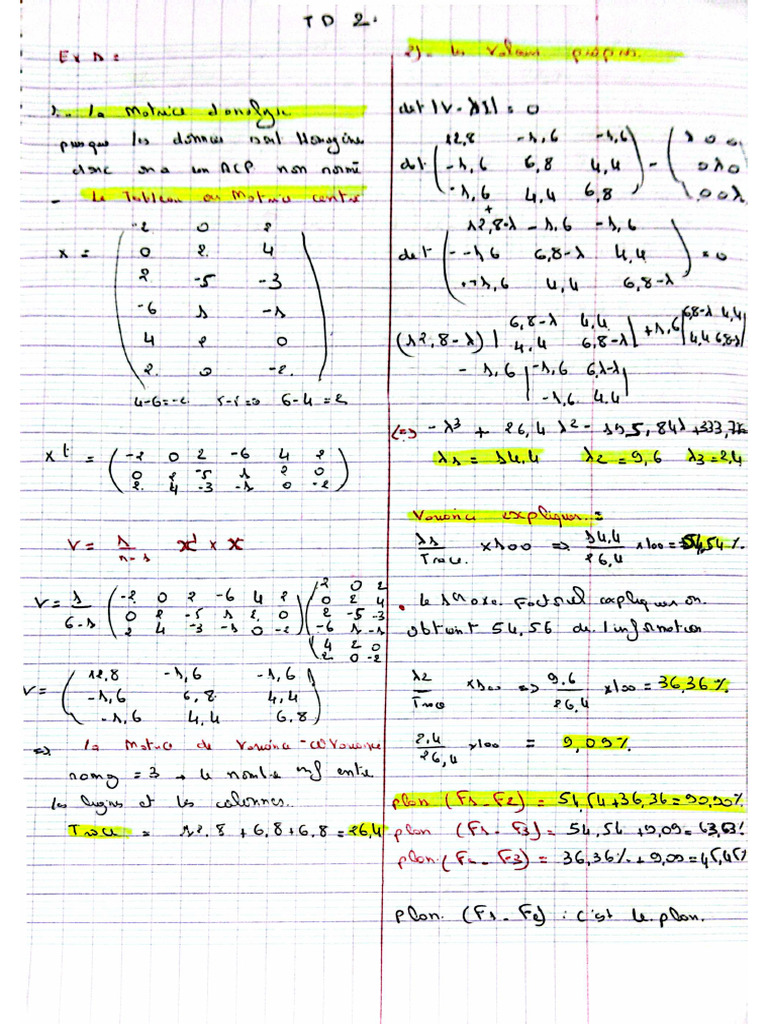 TD 2.
Ex 1 :
1. La Matrice d'analyse
puisque les données sont Homogène
donc on a un ACP non normé
- Le Tableau ou Matrice centré
X = ( -2 0 2
0 2 4
2 -5 -3
-6 1 -1
4 2 0
2 0 -2 )
4-6=-2 5-5=0 6-4=2
X t = ( -2 0 2 -6 4 2
0 2 -5 1 2 0
2 4 -3 -1 0 -2 )
V = 1/n-1 X t × X
V = 1/6-1 ( -2 0 2 -6 4 2
0 2 -5 1 2 0
2 4 -3 -1 0 -2 ) ( -2 0 2
0 2 4
2 -5 -3
-6 1 -1
4 2 0
2 0 -2 )
V = ( 12,8 -1,6 -1,6
-1,6 6,8 4,4
-1,6 4,4 6,8 )
=> La Matrice de Variance-covariance
rang = 3 → le nombre inf entre
les lignes et les colonnes.
Trace = 12,8 + 6,8 + 6,8 = 26,4
2). les valeurs propres.
det |V - λI| = 0
det ( 12,8 -1,6 -1,6
-1,6 6,8 4,4
-1,6 4,4 6,8 ) - ( λ 0 0
0 λ 0
0 0 λ )
det ( 12,8-λ -1,6 -1,6
-1,6 6,8-λ 4,4
-1,6 4,4 6,8-λ ) = 0
(12,8-λ) | 6,8-λ 4,4
4,4 6,8-λ | + 1,6 | 6,8-λ 4,4
4,4 6,8-λ |
- 1,6 | -1,6 6,8-λ
-1,6 4,4 |
(=) -λ3 + 26,4 λ2 - 195,84λ + 333,7
λ1 = 14.4 λ2 = 9,6 λ3 = 2,4
Variance expliquer =
λ1/Trace × 100 => 14.4/26,4 × 100 = 54,54 %
• le 1er axe Factoriel expliquer on
obtient 54,56 de l'information
λ2/Trace × 100 => 9.6/26,4 × 100 = 36,36 %
2,4/26,4 × 100 = 9,09 %
plan (F1 - F2) = 54,54 + 36,36 = 90,90 %
plan (F1 - F3) = 54,56 + 9,09 = 63,63 %
plan (F2 - F3) = 36,36 % + 9,09 = 45,45 %
plan (F1 - F2) : c'est le plan.